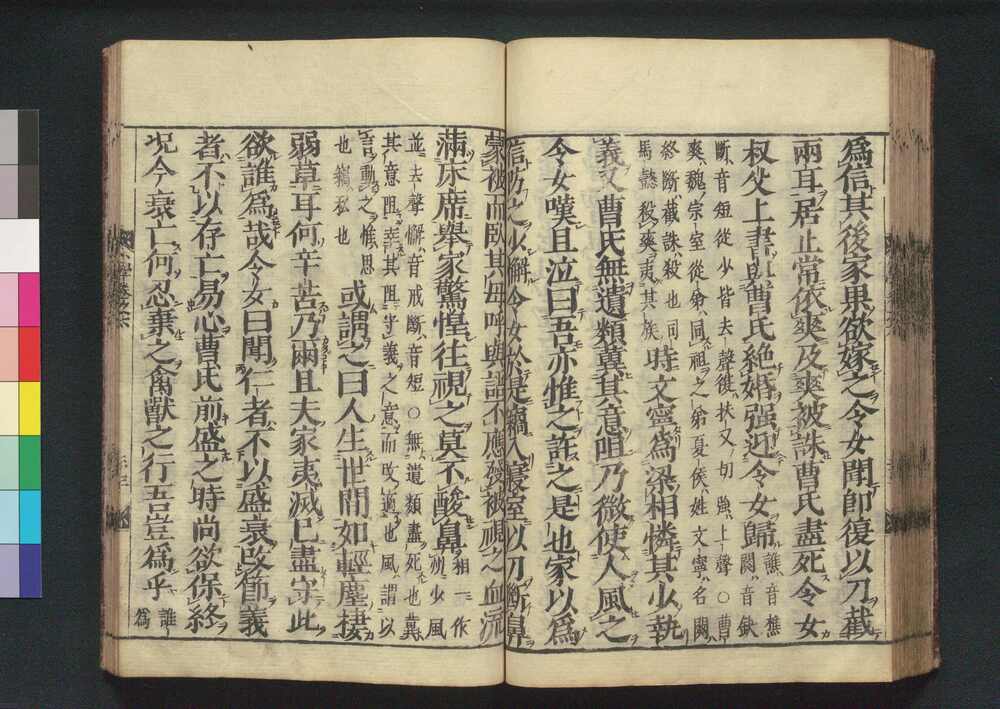 爲信其後家果欲嫁之令女聞即復以刀截
兩耳居止常依爽及爽被誅曹氏盡死令女
叔父上書與曹氏絶婚强迎令女歸
譙音樵
闋音缺
斷音短從少皆去聲復扶又切強上聲○曹
爽魏宗室從弟同祖之弟夏侯姓文寧名闋
終斷截誅殺也司
馬懿殺爽夷其族
時文寧爲梁相憐其少執
義又曹氏無遺類冀其意咀乃微使人風之
令女嘆且泣曰吾亦惟之許之是也家以爲
信防之少懈令女於是竊入寢室以刀斷鼻
蒙被而臥其母呼與語不應發被視之血流
滿床席舉家驚惶往視之莫不酸鼻
相一作
少風
並去聲懈音戒斷音短○無遺類盡死也冀
其意阻幸其阻守義之意而改適也風謂以
言動之惟思
也竊私也
或謂之曰人生世間如輕塵棲
弱草耳何辛苦乃爾且夫家夷滅已盡守此
欲誰爲哉令女曰聞仁者不以盛衰改節義
者不以存亡易心曹氏前盛之時尚欲保終
况今衰亡何忍棄之禽獸之行吾豈爲乎
誰
爲